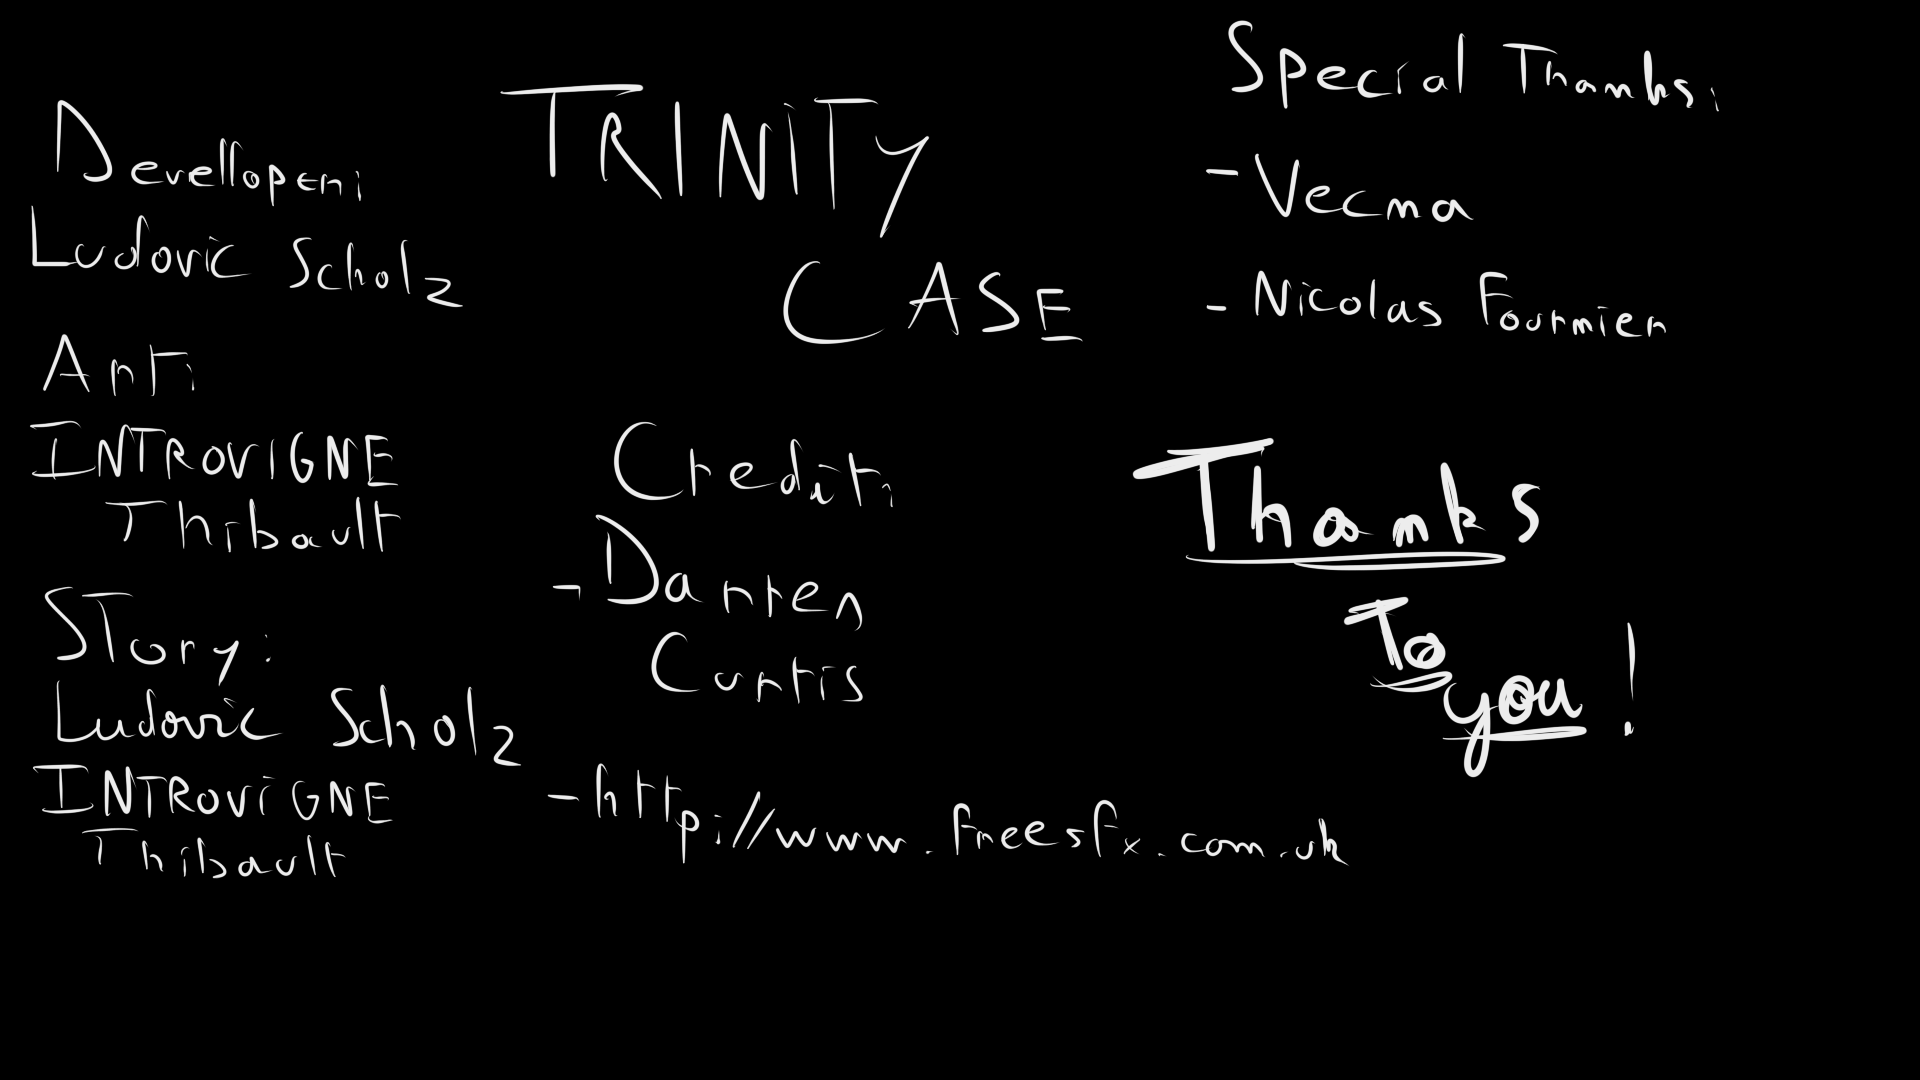 TRINITY
CASE
Developper:
Ludovic Scholz
Art:
INTROVIGNE
Thibault
Story:
Ludovic Scholz
INTROVIGNE
Thibault
Credit:
- Darren
Curtis
- http://www.freesfx.com.uk
Special Thanks:
- Vecma
- Nicolas Fournier
Thanks
To
you!